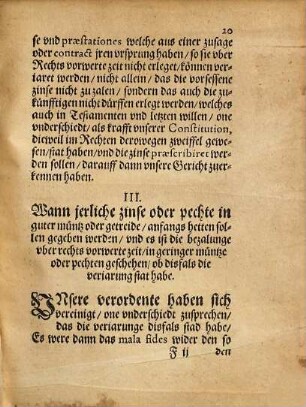 20
se vnd præstationes welche aus einer zusage
oder contract jren vrsprung haben/ so sie vber
Rechts vorwerte zeit nicht erleget/ können ver-
iaret werden/ nicht allein/ das die vorsessene
zinse nicht zu zalen/ sondern das auch die zu-
künfftigen nicht dürffen erlegt werden/ welches
auch in Testamenten vnd letzten willen/ one
vnderschiedt/ als krafft vnserer Constitution,
dieweil im Rechten derowegen zweiffel gewe-
sen/ stat haben/ vnd die zinse præscribiret wer-
den sollen/ darauff dann vnsere Gericht zuer-
kennen haben.
III.
Wann jerliche zinse oder pechte in
guter müntz oder getreide/ anfangs hetten sol-
len gegeben werden/ vnd es ist die bezalunge
vber rechts vorwerte zeit/ in geringer müntze
oder pechten geschehen/ ob disfals die
veriarung stat habe.
VNsere verordente haben sich
vereinigt/ one vnderschiedt zusprechen/
das die veriarunge disfals stad habe/
Es were dann das mala fides wider den so
F ij den